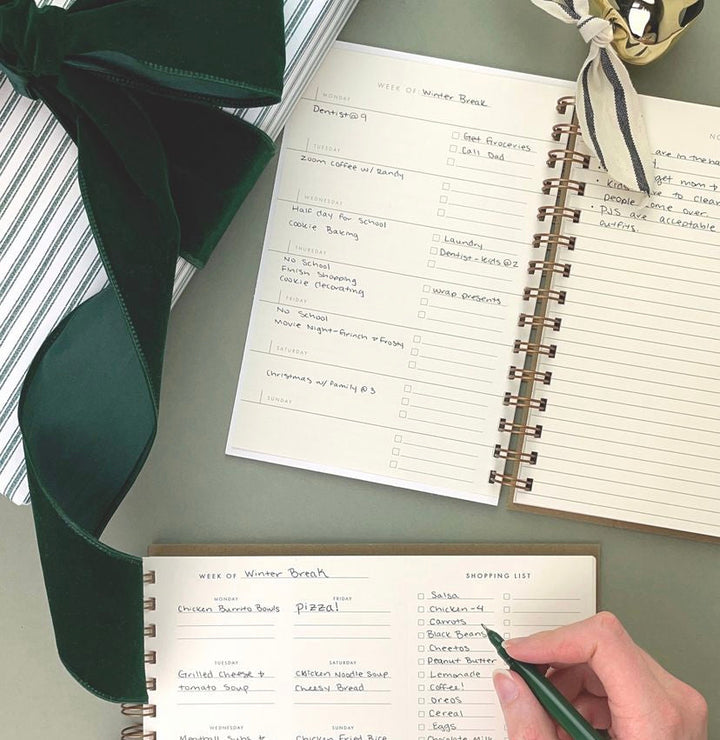 WEEK OF: Winter Break
MONDAY
Dentist @ 9
Get Groceries
Call Dad
TUESDAY
Zoom coffee w/ Randy
WEDNESDAY
Half day for School
Cookie Baking
Laundry
Dentist-kids @2
THURSDAY
No School
Finish Shopping
Cookie decorating
wrap presents
FRIDAY
No School
Movie Night-Grinch & Frosty
SATURDAY
Christmas w/ Family @ 3
SUNDAY
NO
are in the
get mom +
• Kids to clean
people come over.
• PJS are acceptable
outfits.
WEEK OF Winter Break
MONDAY
Chicken Burrito Bowls
FRIDAY
Pizza!
TUESDAY
Grilled Cheese +
tomato Soup
SATURDAY
Chicken Noodle Soup
Cheesy Bread
WEDNESDAY
Meatball Subs +
SUNDAY
Chicken Fried Rice
SHOPPING LIST
Salsa
Chicken-4
Carrots
Black Beans
Cheetos
Peanut Butter
Lemonade
Coffee!
Oreos
Cereal
Eggs
Chocolate Milk